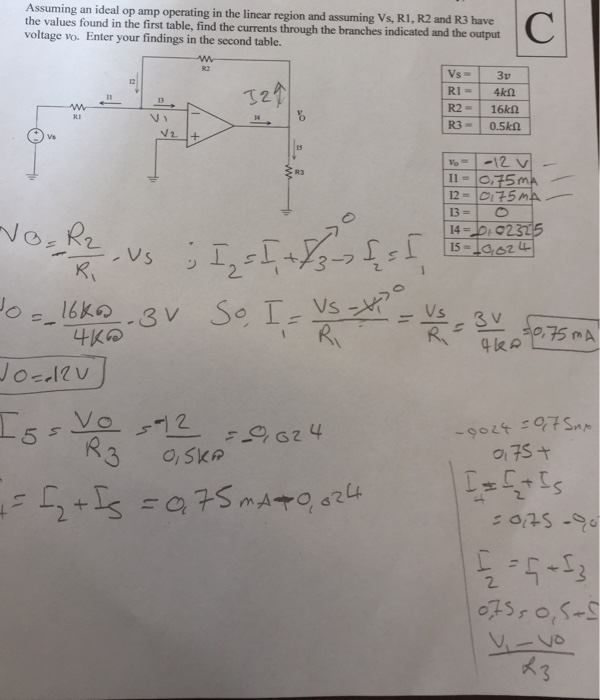 Assuming an ideal op amp operating in the linear region and assuming Vs, R1, R2 and R3 have
the values found in the first table, find the currents through the branches indicated and the output
voltage vo. Enter your findings in the second table.
C
R2
I2
I2↑
I1
I3
R1
V1
V2
I4
Vo
Vs
I5
R3
Vs = 3v
R1 = 4kΩ
R2 = 16kΩ
R3 = 0.5kΩ
Vo = -12 V
I1 = 0,75mA
I2 = 0,75mA
I3 = 0
I4 = -0,02325
I5 = -0,024
VO = - R2/R1 . Vs ; I2 = I1 + I3 → 0 → I2 = I1
VO = - 16KΩ/4KΩ . 3V So, I1 = Vs - V1 → 0 / R1 = Vs/R1 = 3V/4kΩ = 0,75 mA
VO = -12V
I5 = VO/R3 = -12/0,5KΩ = -0,024
= I2 + I5 = 0,75mA + 0,024
-0024 = 0,75mA
0,75 +
I4 = I2 + I5
= 0,75 - 0,0
I2 = I1 + I3
0,75 = 0,5 + I
V1 - VO / R3